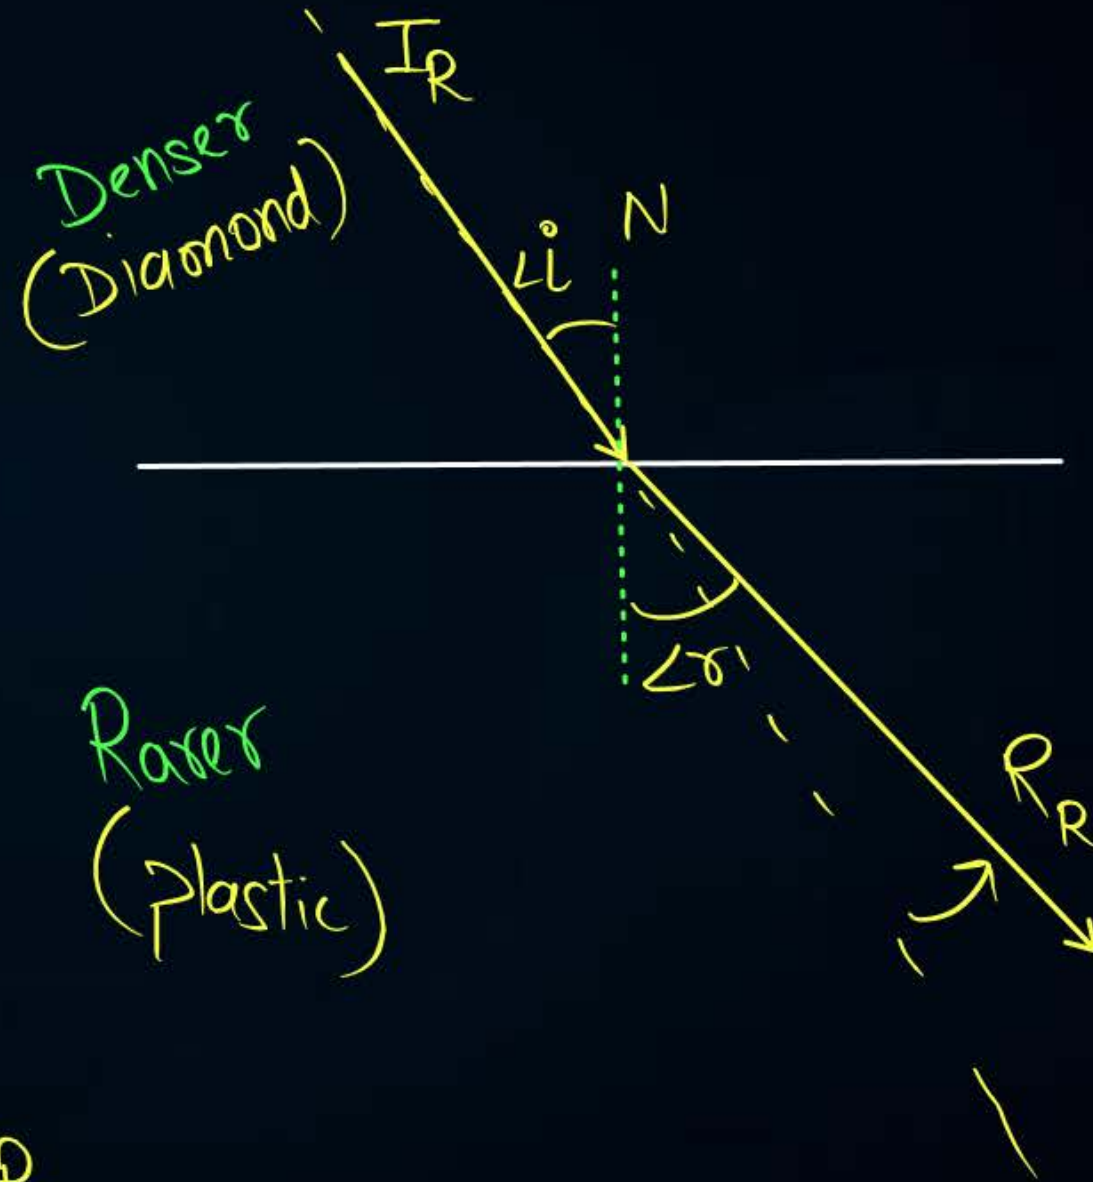 I_R
Denser
(Diamond)
∠i
N
∠r
Rarer
(plastic)
R_R